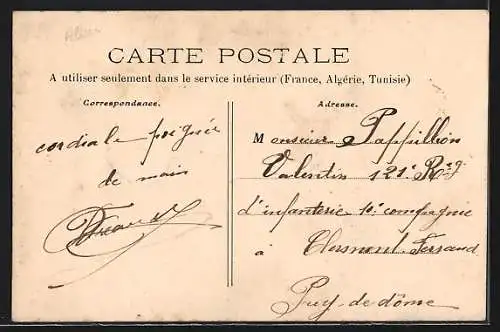 CARTE POSTALE
A utiliser seulement dans le service intérieur (France, Algérie, Tunisie)
Correspondance.
cordiale poignée
de main
Adresse.
Monsieur Pappillion
Valentin 121e Rég
d'infanterie 10e compagnie
à Clermont-Ferrand
Puy-de-dôme